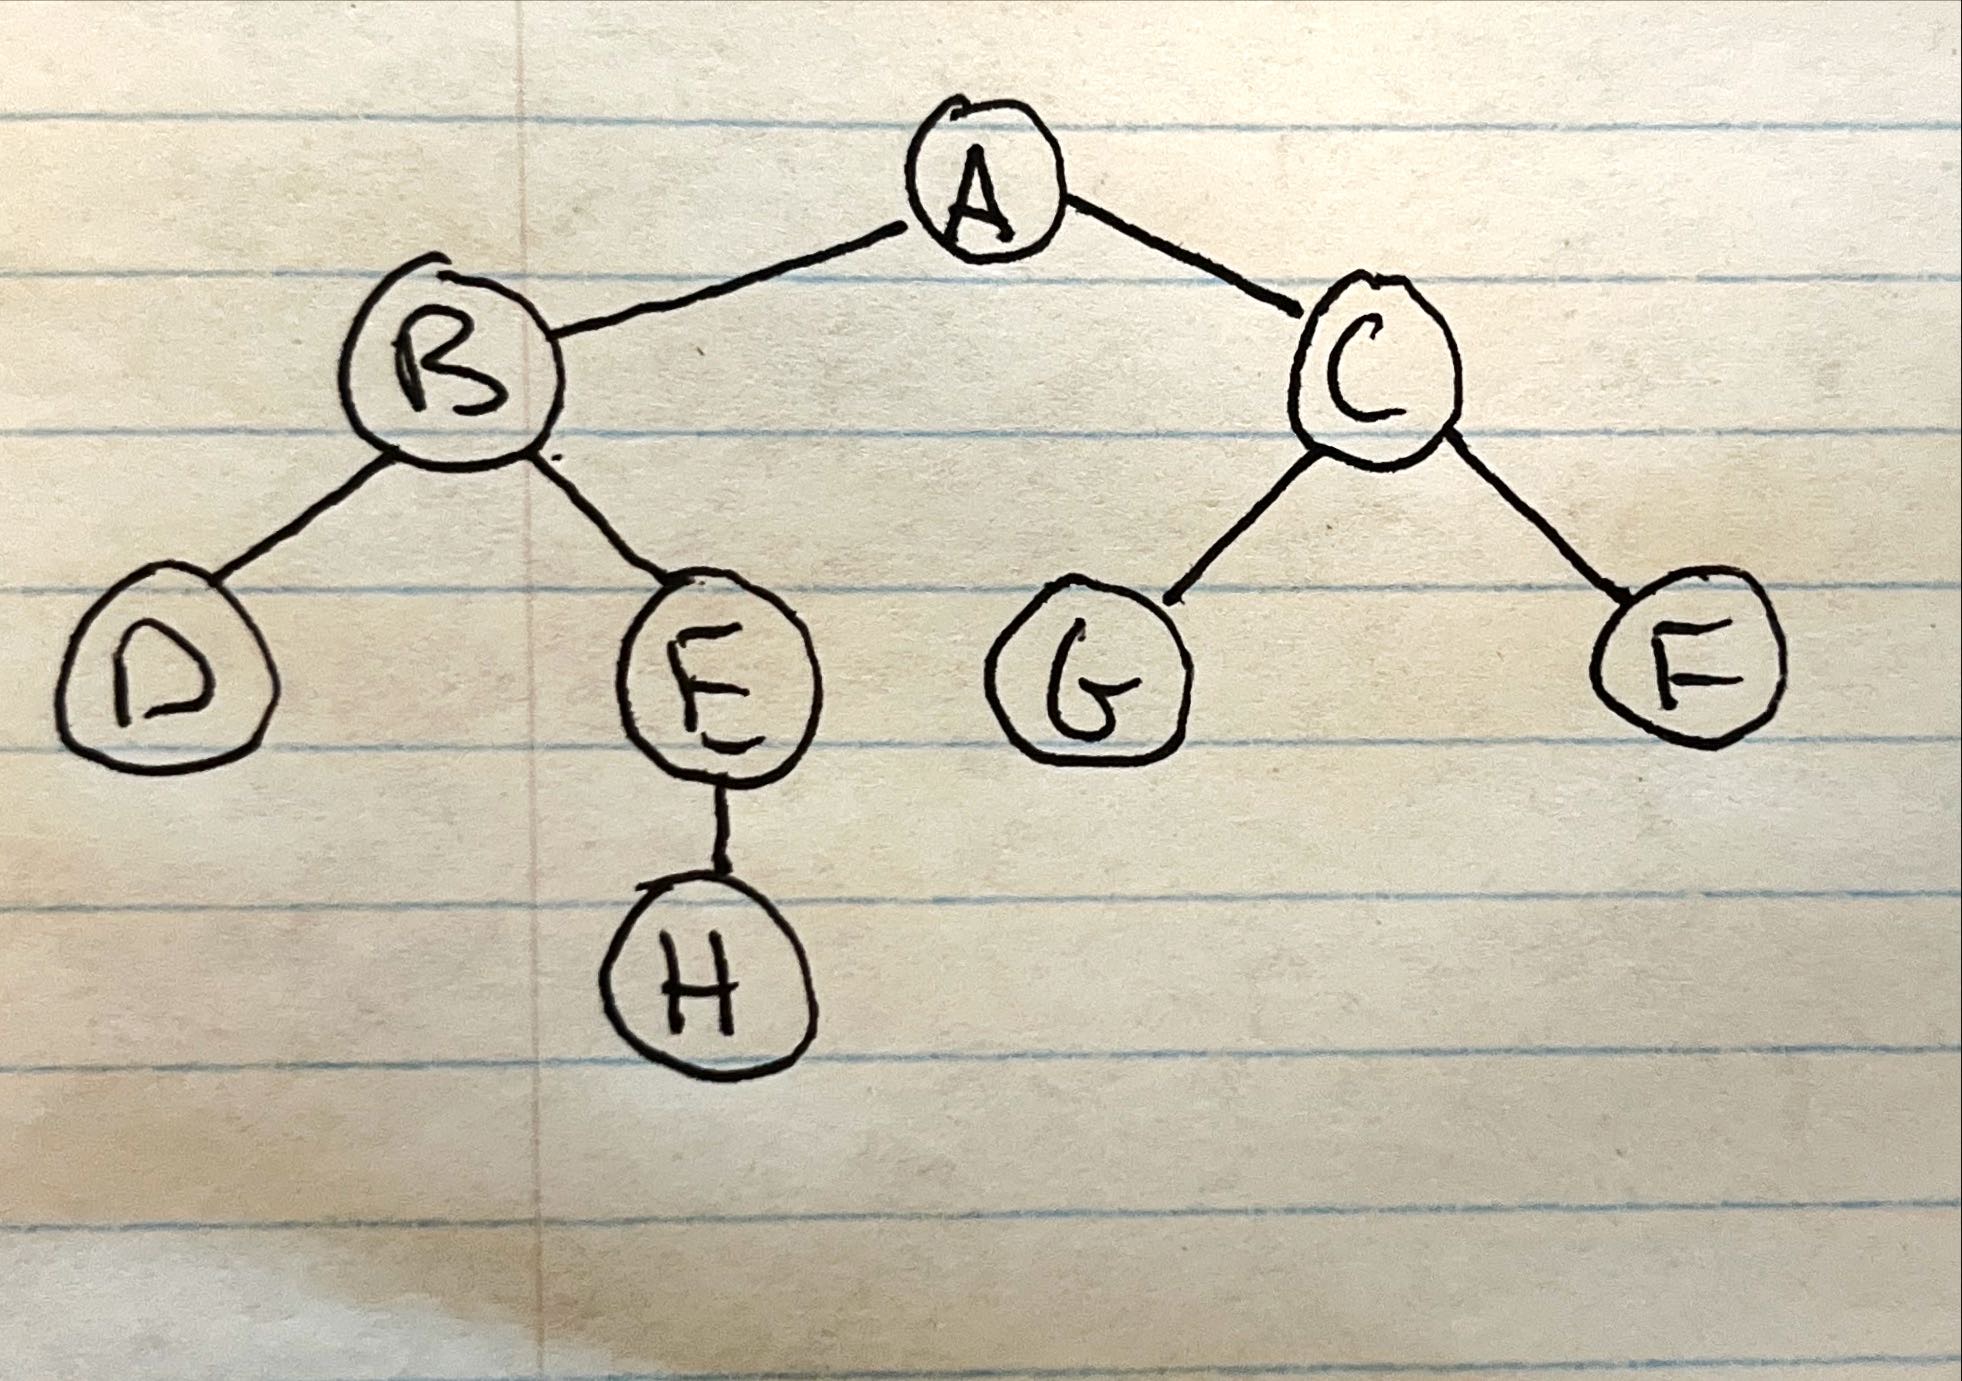 A
B C
D E G F
H